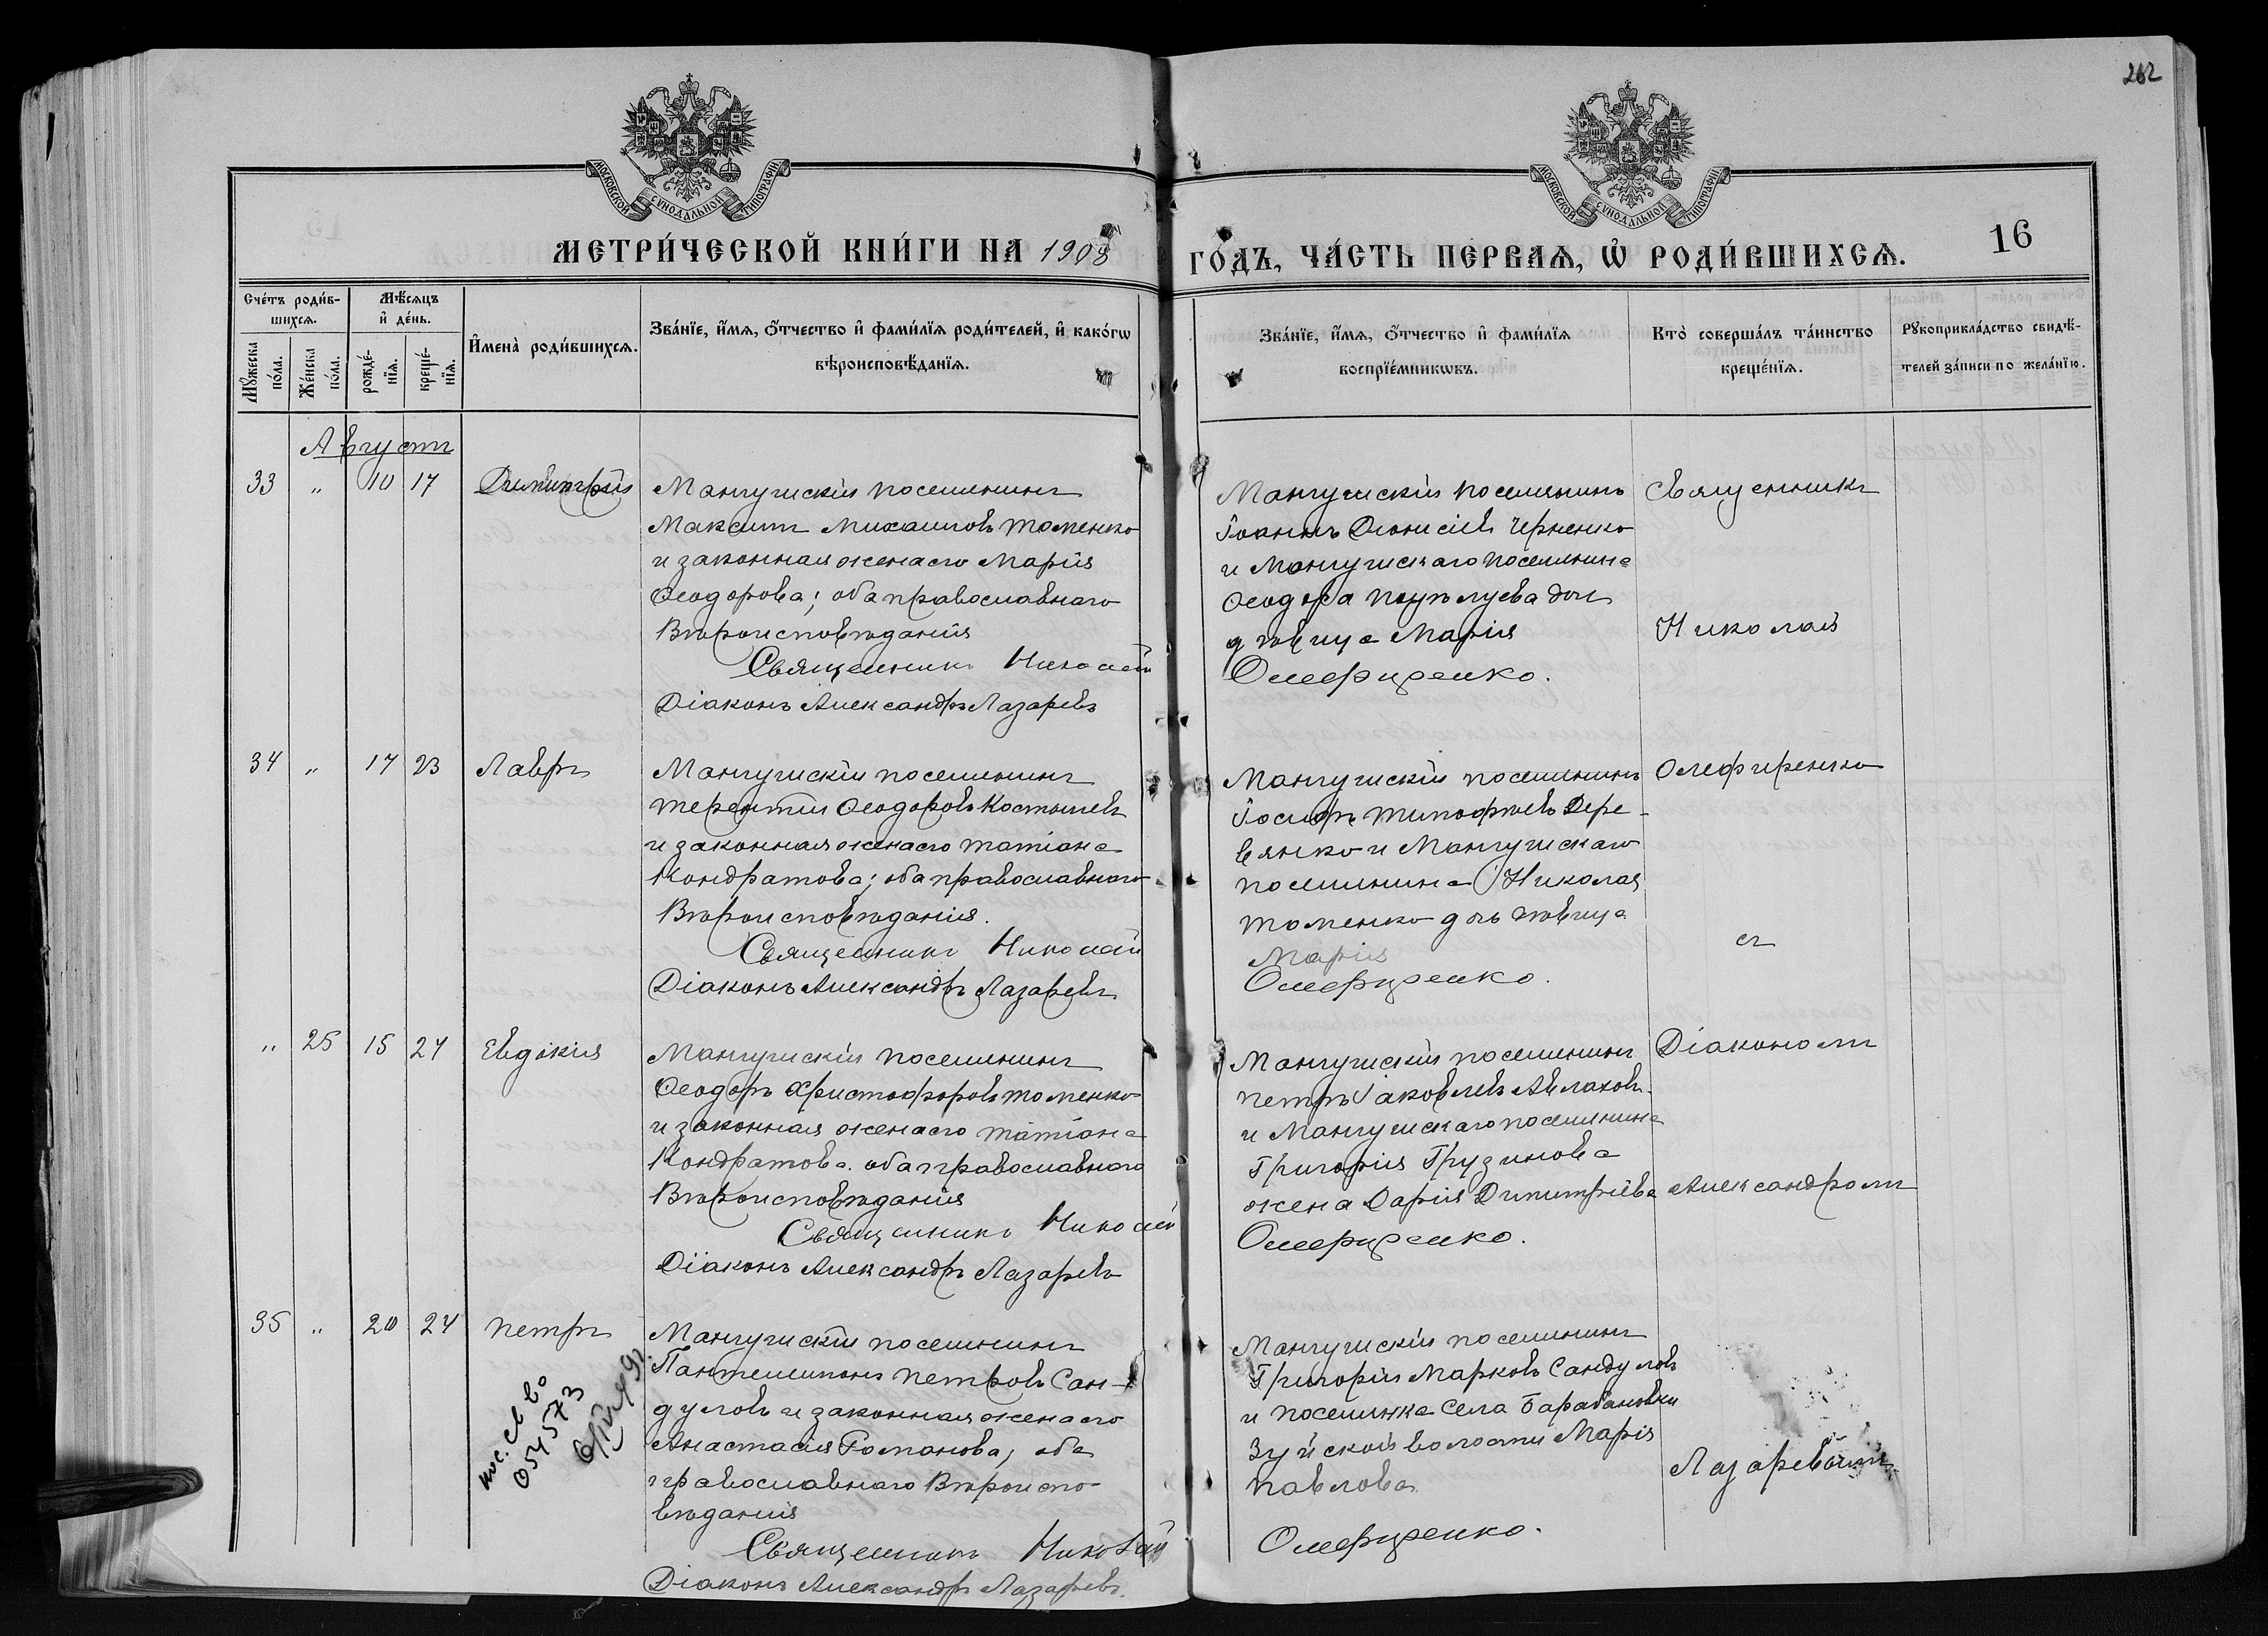 262
МОСКОВСКОЙ СУНОДАЛЬНОЙ ТИПОГРАФІИ
МОСКОВСКОЙ СУНОДАЛЬНОЙ ТИПОГРАФІИ
МЕТРИ́ЧЕСКОЙ КНИ́ГИ НА 1908
ГО́ДЪ, ЧА́СТЬ ПЕ́РВАѦ, Ѡ҆ РОДИ́ВШИХСѦ.
16
Сче́тъ роди́в-
шихсѧ.
Мѣ́сѧцъ
и҆ де́нь.
И҆мена̀ роди́вшихсѧ.
Зва́нїе, и҆́мѧ, ѻ҆́тчество и҆ фами́лїѧ роди́телей, и҆ како́гѡ
вѣроисповѣ́данїѧ.
Мꙋ́жеска по́ла.
Же́нска по́ла.
рожде́-
нїѧ.
креще́-
нїѧ.
Зва́нїе, и҆́мѧ, ѻ҆́тчество и҆ фами́лїѧ
воспрїе́мникѡвъ.
Кто̀ соверша́лъ та́инство
креще́нїѧ.
Рꙋкоприкла́дство свидѣ́-
телей за́писи по жела́нїю.
Августъ
33 " 10 17 Димитрій
Мангушскій поселянинъ
Максимъ Михаиловъ Томенко
и законная жена его Марія
Ѳеодорова; оба православнаго
Вѣроисповѣданія
Священникъ Николай
Діаконъ Александръ Лазаревъ
Мангушскій поселянинъ
Іоаннъ Діонисіевъ Черненко
и Мангушскаго поселянина
Ѳеодора дочь
дѣвица Марія
Олефиренко.
Священникъ
Николай
34 " 17 23 Лавръ
Мангушскій поселянинъ
Терентій Ѳеодоровъ Костышевъ
и законная жена его Татіана
Кондратова; оба православнаго
Вѣроисповѣданія.
Священникъ Николай
Діаконъ Александръ Лазаревъ
Мангушскій поселянинъ
Іосифъ Тимофѣевъ Дере-
вянко и Мангушскаго
поселянина Николая
Томенко дочь дѣвица
Марія
Олефиренко.
Олефиренко
съ
" 25 15 24 Евдокія
Мангушскій поселянинъ
Ѳеодоръ Христофоровъ Томенко
и законная жена его Татіана
Кондратова. оба православнаго
Вѣроисповѣданія
Священникъ Николай
Діаконъ Александръ Лазаревъ
Мангушскій поселянинъ
Петръ Іаковлевъ Авлаховъ
и Мангушскаго поселянина
Григорія Грузинова
жена Дарія Димитріева
Олефиренко.
Діакономъ
Александромъ
35 " 20 24 Петръ
Мангушскій поселянинъ
Пантелимонъ Петровъ Сан-
дуловъ и законная жена его
Анастасія Романова; оба
православнаго Вѣроиспо-
вѣданія
Священникъ Николай
Діаконъ Александръ Лазаревъ.
054573
Мангушскій поселянинъ
Григорій Марковъ Сандуловъ
и поселянка села Барабановки
Зуйской волости Марія
Павлова
Олефиренко.
Лазаревымъ